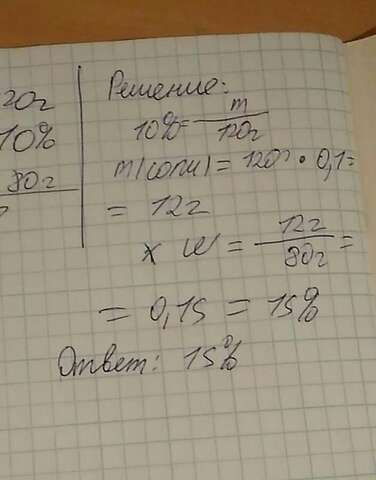 20г
10%
80г
Решение:
10%= m
120г
m(соли) = 120г • 0,1=
= 12г
x W = 12г =
80г
= 0,15 = 15%
Ответ: 15%